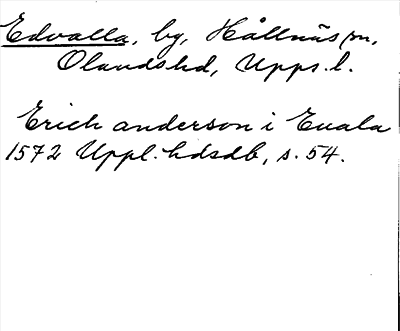 Edvalla, by, Hållnäs sn,
Olandshd, Upps. l.
Erich anderson i Euala
1572 Uppl. hdsdb, s. 54.